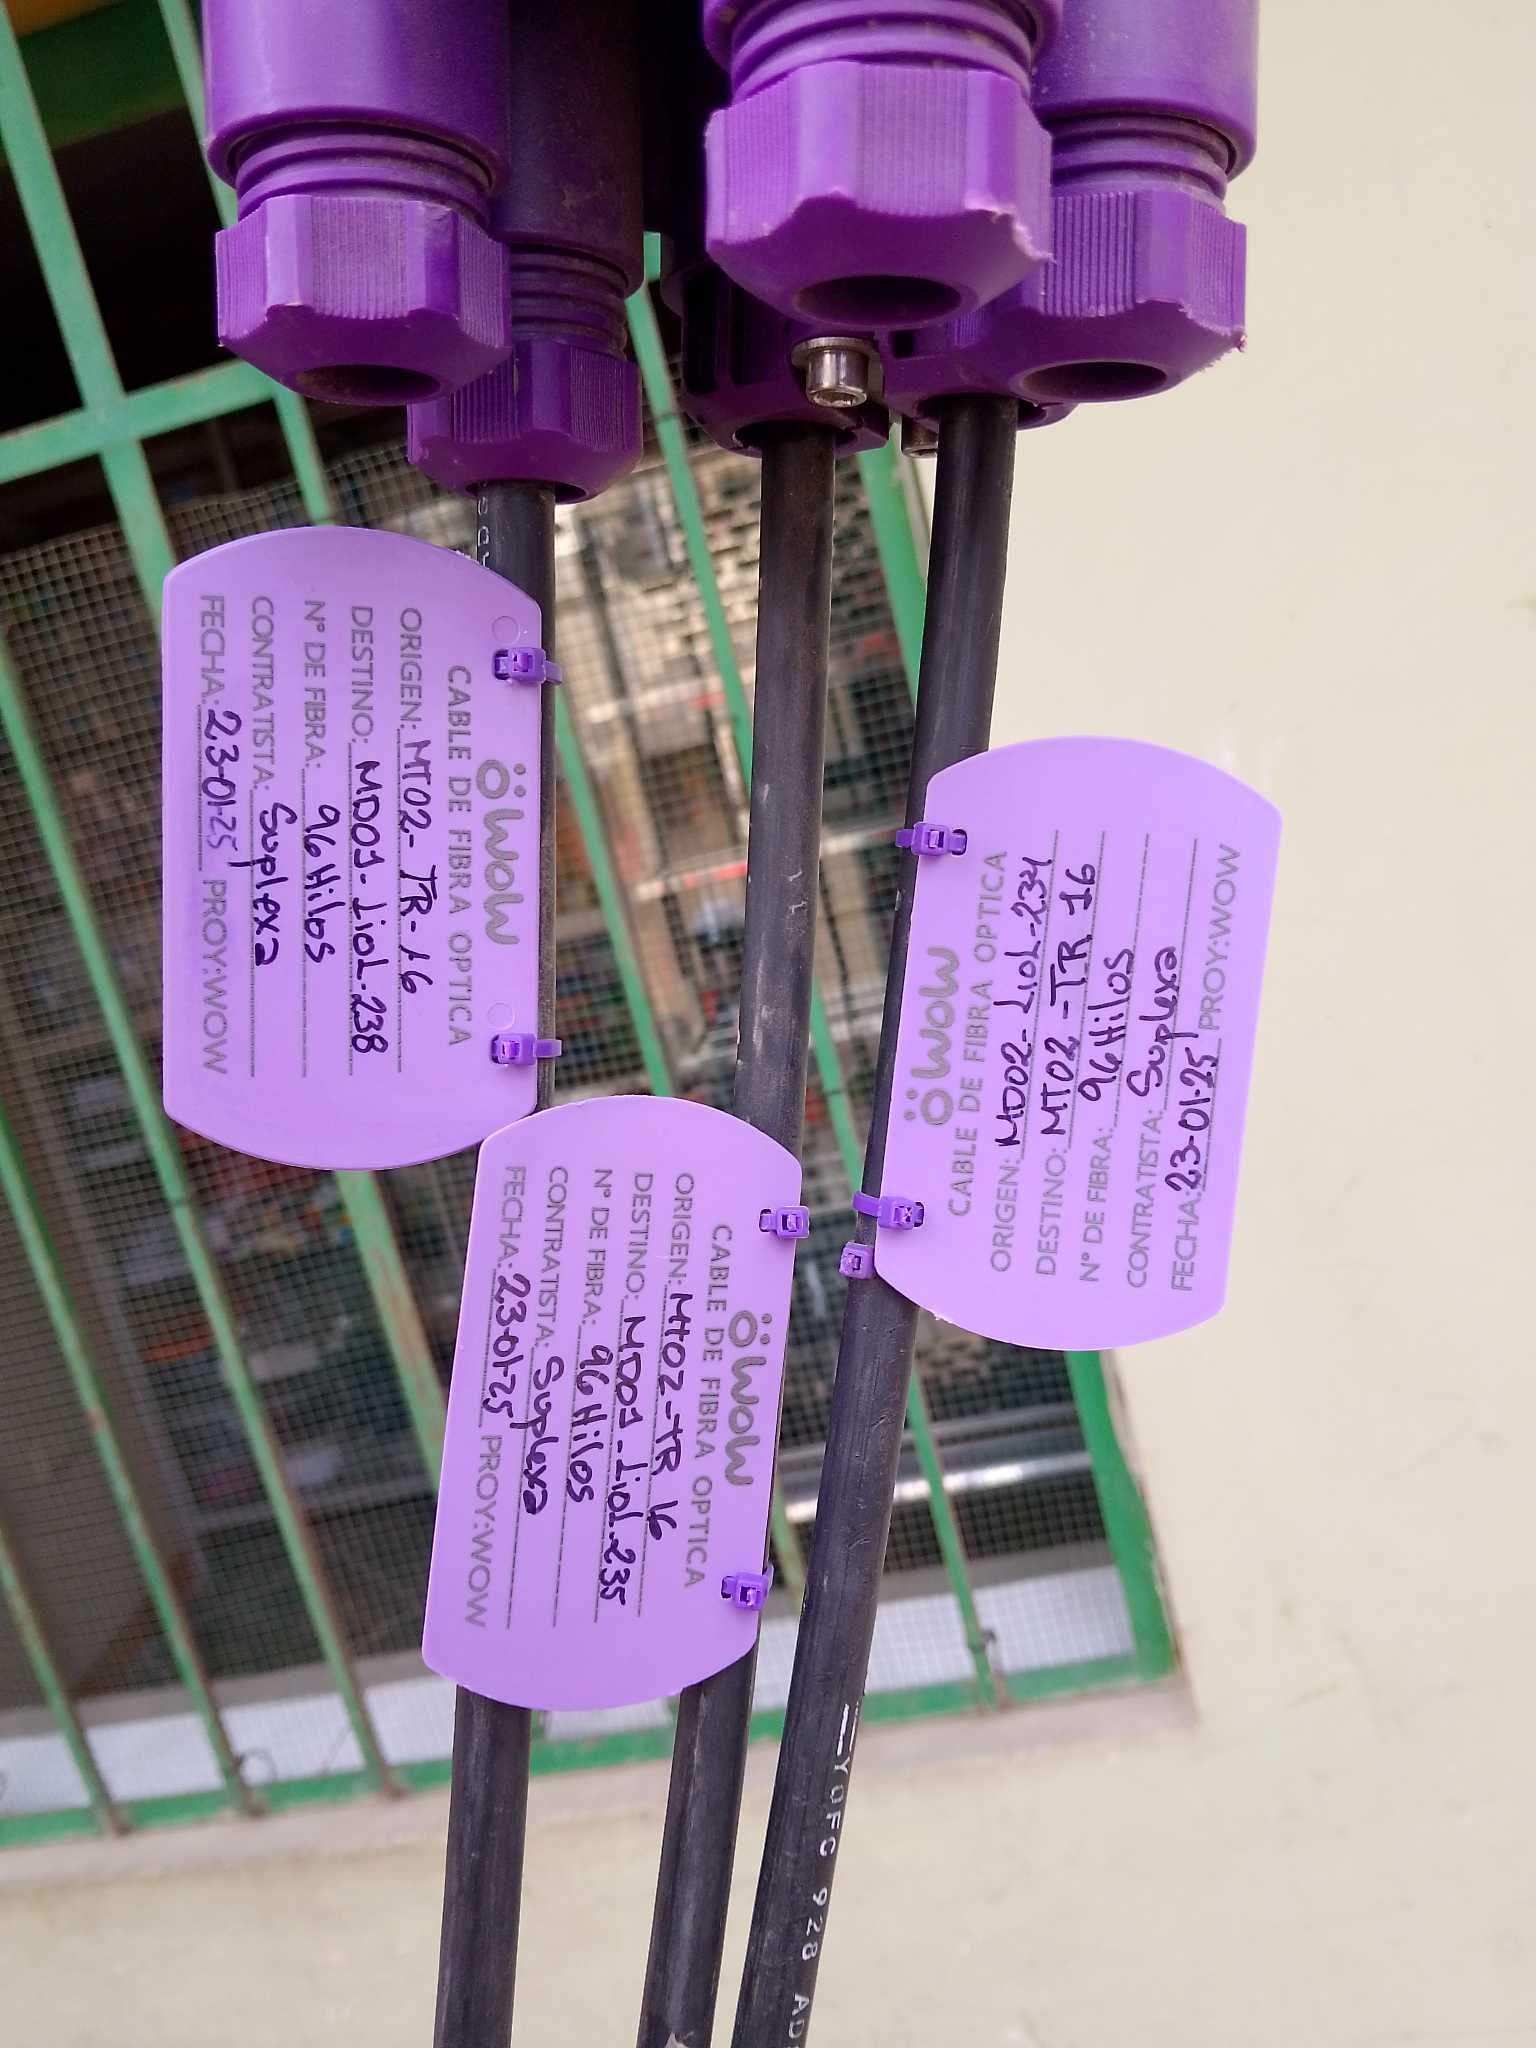 wow
CABLE DE FIBRA OPTICA
ORIGEN: MT02-TR-16
DESTINO: MD01-LioL-238
N° DE FIBRA: 96 Hilos
CONTRATISTA: Suplexa
FECHA: 23-01-25 PROY:WOW
wow
CABLE DE FIBRA OPTICA
ORIGEN: MT02-TR 16
DESTINO: MD01-LioL-235
N° DE FIBRA: 96 Hilos
CONTRATISTA: Suplexa
FECHA: 23-01-25 PROY:WOW
wow
CABLE DE FIBRA OPTICA
ORIGEN: MD02-LioL-234
DESTINO: MT02-TR 16
N° DE FIBRA: 96 Hilos
CONTRATISTA: Suplexa
FECHA: 23-01-25 PROY:WOW
YOFC 928 AD